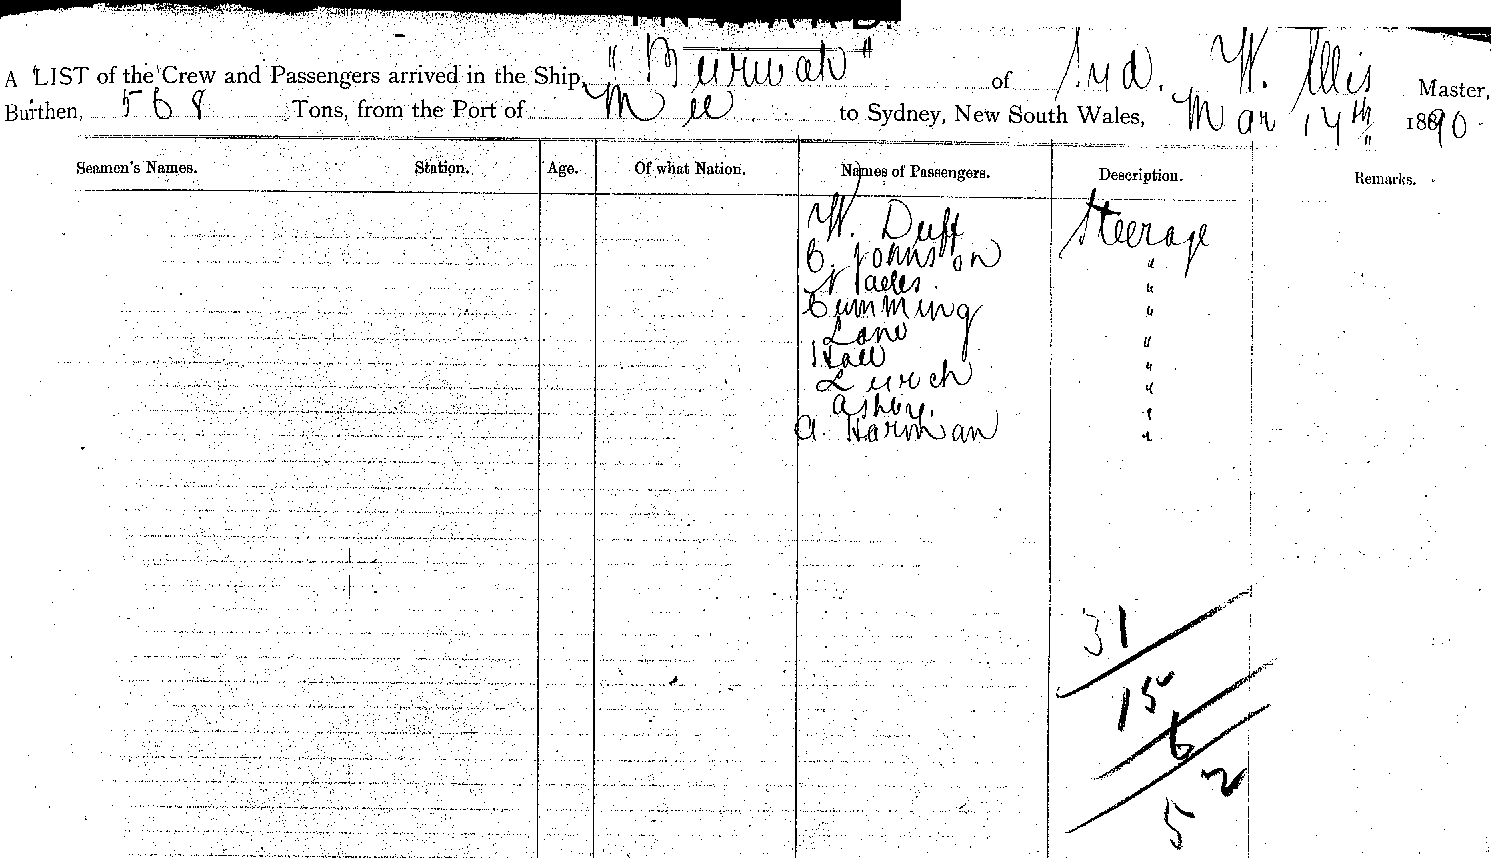 A LIST of the Crew and Passengers arrived in the Ship, "Burwah" of Syd. W. Ellis Master,
Burthen, 568 Tons, from the Port of to Sydney, New South Wales, Mar 14th 1890
Seamen's Names. Station. Age. Of what Nation. Names of Passengers. Description. Remarks.
W. Duff Steerage
C. Johnston "
"
Cumming "
Lane "
Hall "
Lurch "
Ashby. "
A. Harman "
31
15
6
2
5